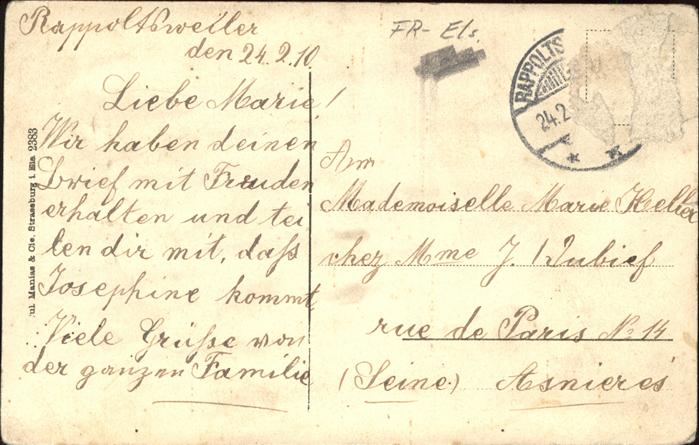 Rappoltsweiler
den 24.2.10
Liebe Marie!
Wir haben deinen
Brief mit Freuden
erhalten und tei
len dir mit, daß
Josephine kommt
Viele Grüße von
der ganzen Familie
FR- Els.
RAPPOLTS
24.2
Am
Mademoiselle Marie Keller
chez Mme J. Dubief
rue de Paris No 14
(Seine) Asnieres
ul Manias & Cie. Strassburg i. Els 2383